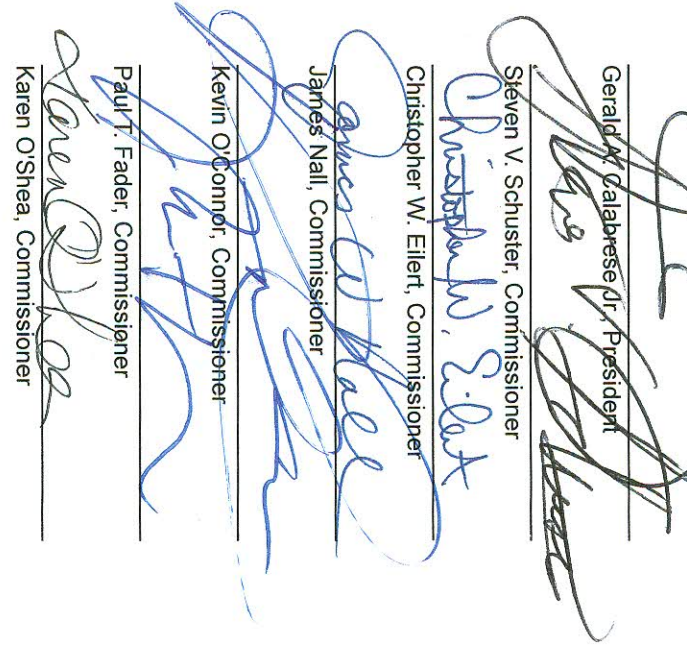 Gerald A. Calabrese Jr., President
Steven V. Schuster, Commissioner
Christopher W. Eilert
Christopher W. Eilert, Commissioner
James W Nall
James Nall, Commissioner
Kevin O'Connor, Commissioner
Paul T. Fader, Commissioner
Karen O'Shea
Karen O'Shea, Commissioner